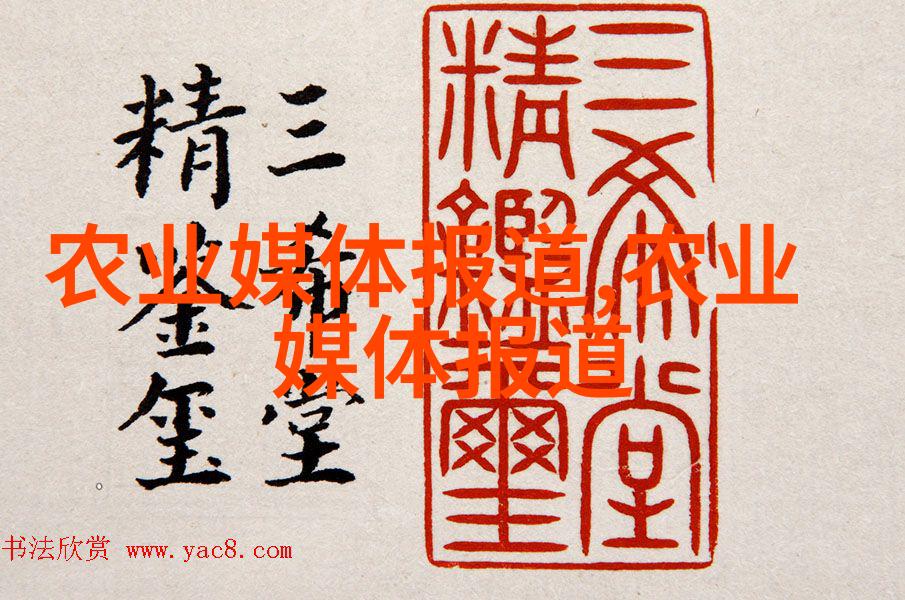 三希堂
精鉴玺
三希堂
精鑑璽
农业媒体报道,农业
媒体报道
书法欣赏 www.yac8.com